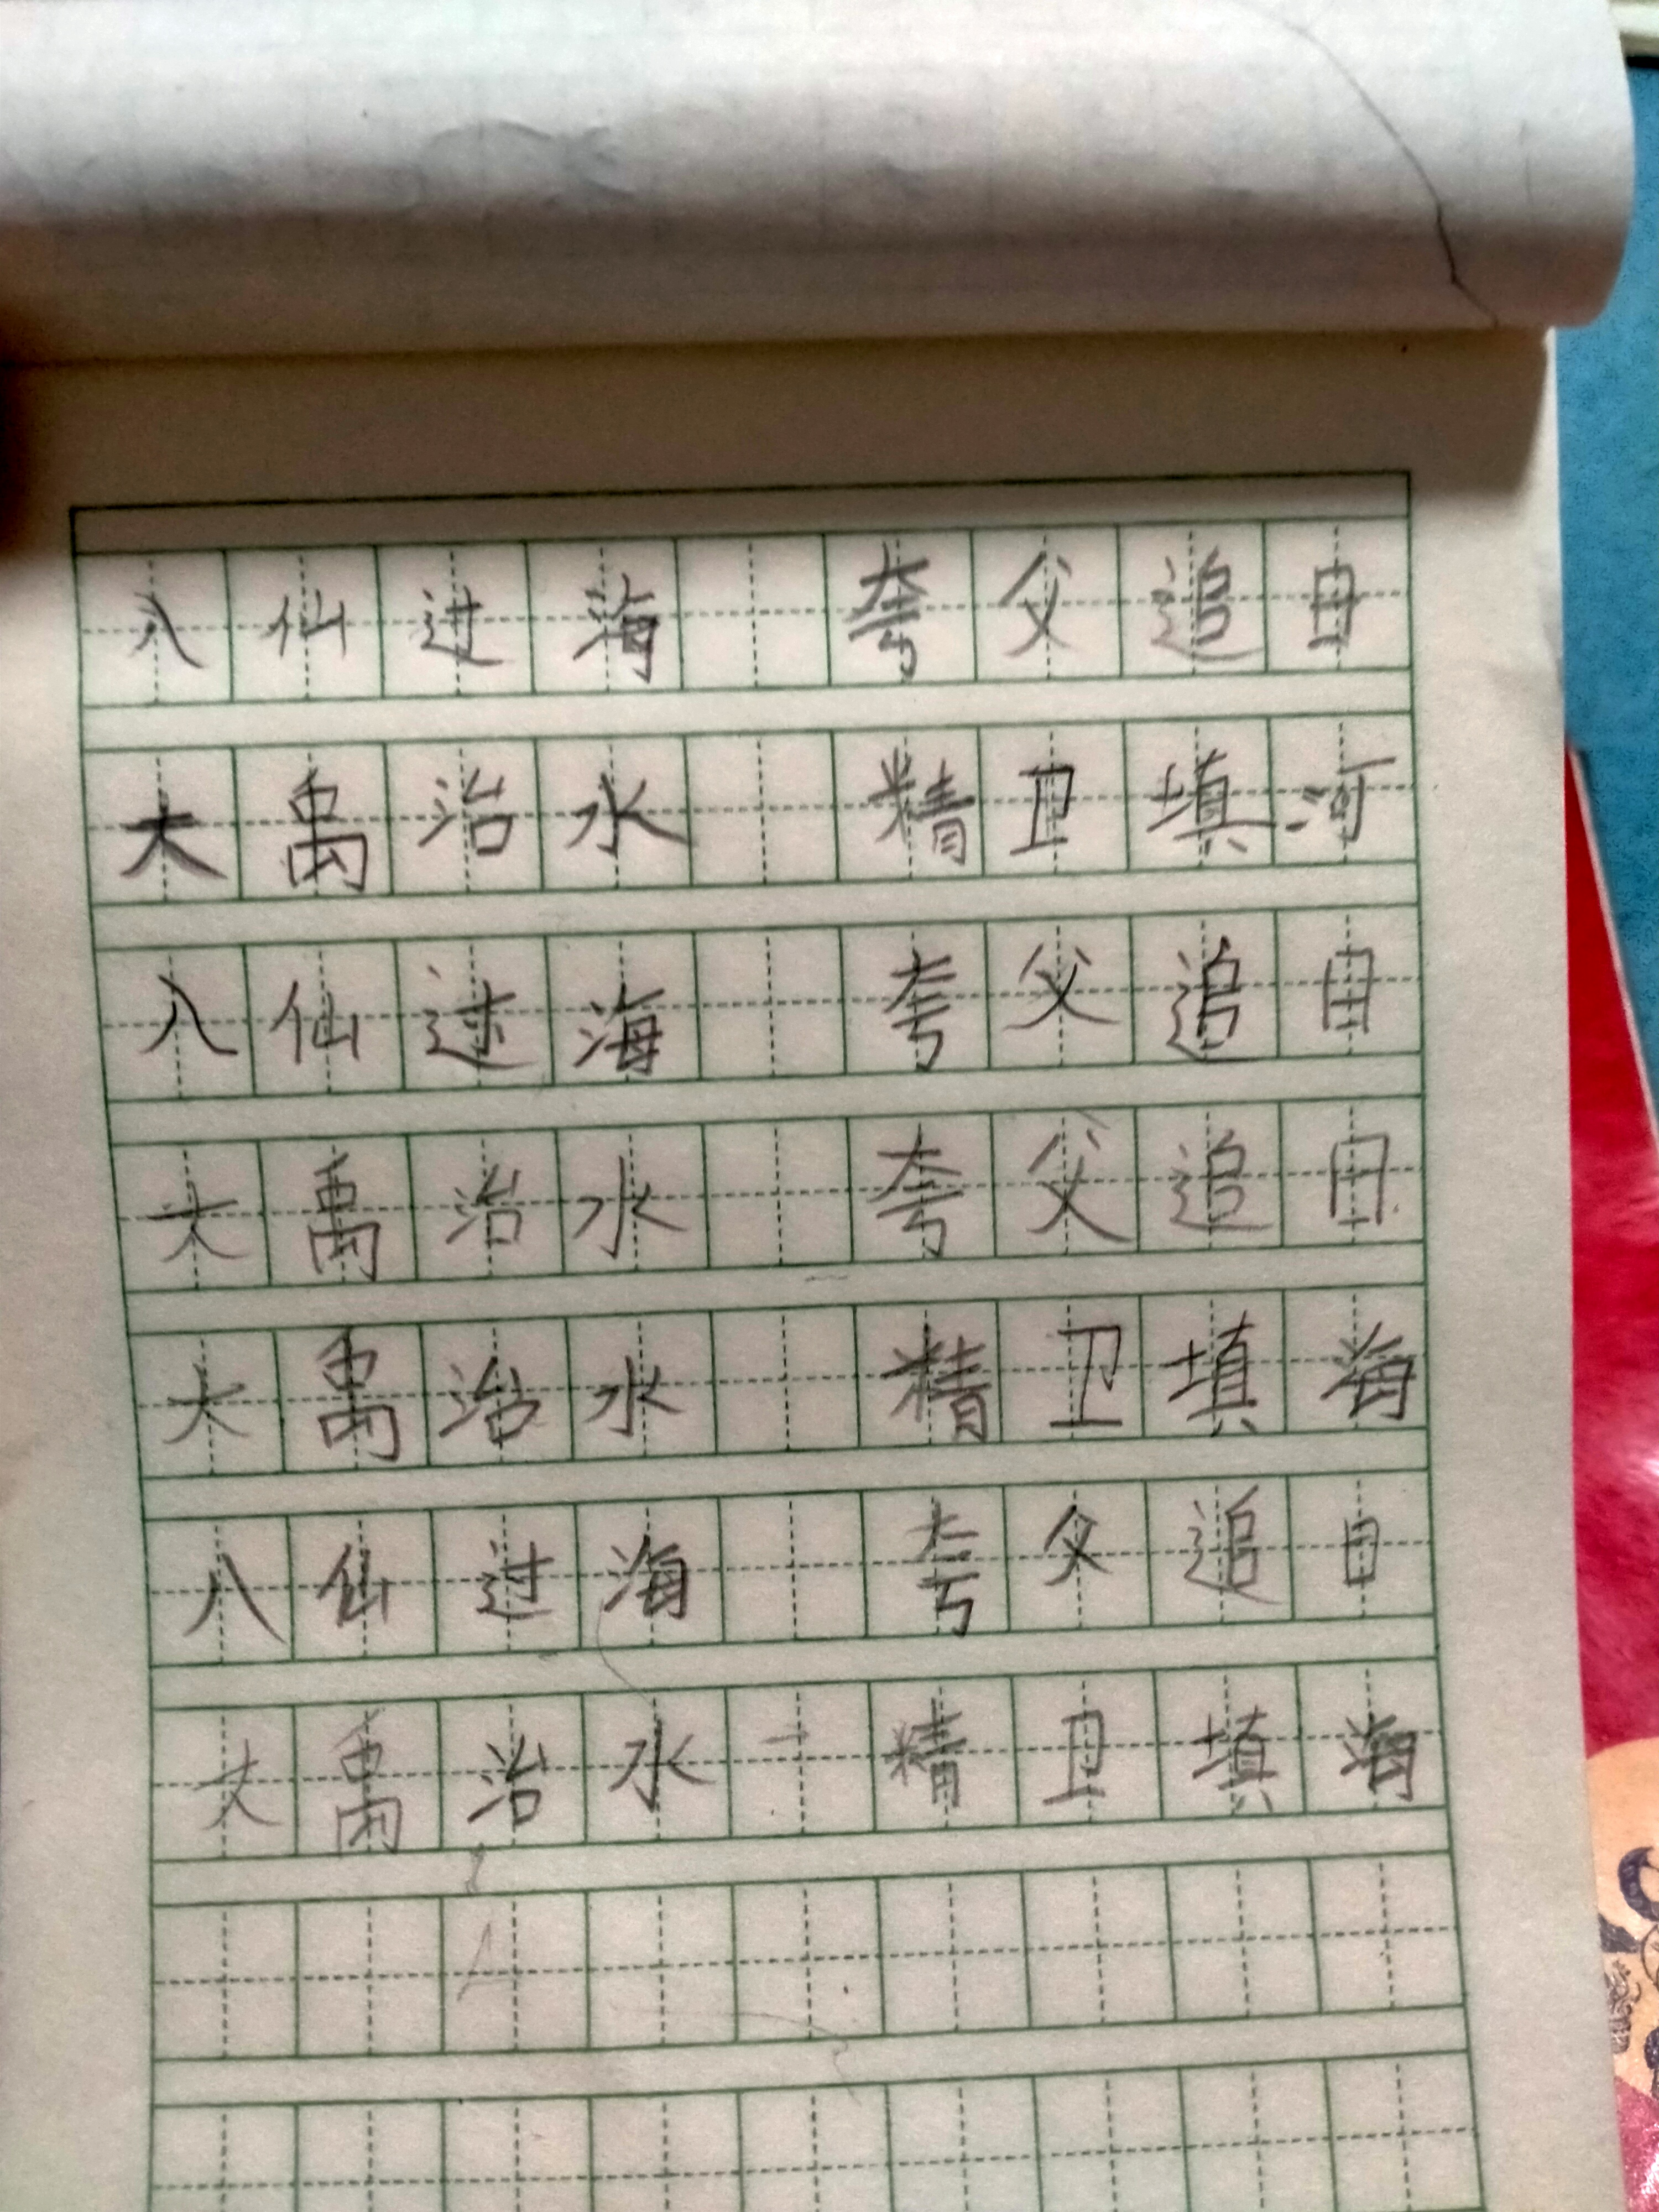 八仙过海 夸父追日
大禹治水 精卫填河
八仙过海 夸父追日
大禹治水 夸父追日
大禹治水 精卫填海
八仙过海 夸父追日
大禹治水 精卫填海